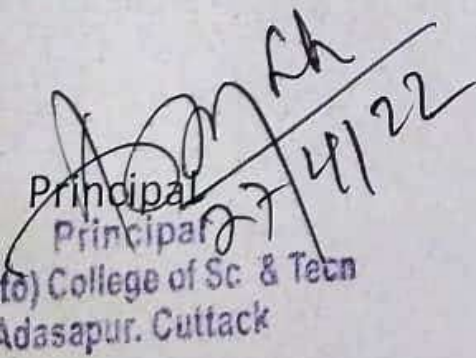 27/4/22
Principal
Principal
to) College of Sc & Tech
Adasapur. Cuttack